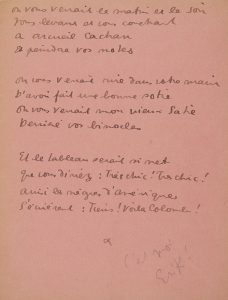 on vous venait le matin et le soir
vous levant et vous couchant
a arcueil Cachan
a peindre vos notes
on vous venait rire dans votre main
d'avoir fait une bonne
on vous venait mon vieux Satie
Derrière vos binocles
Et le tableau serait si net
que vous diriez : Très chic ! Très chic !
ainsi les nègres d'amériques
S'écrièrent : Tiens ! Voilà Colomb !
c'est
Erik !